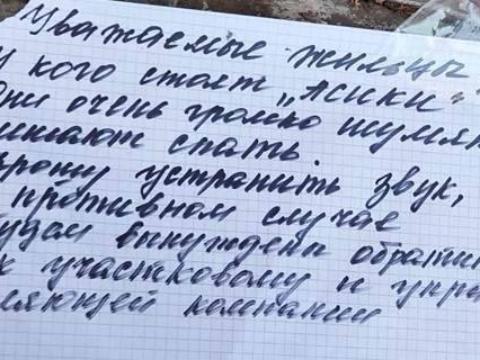 Уважаемые жильцы
У кого стоят „Асики“
они очень громко шумят
мешают спать.
Прошу устранить звук,
в противном случае
будем вынуждены обратит
к участковому и упра
вляющей компании